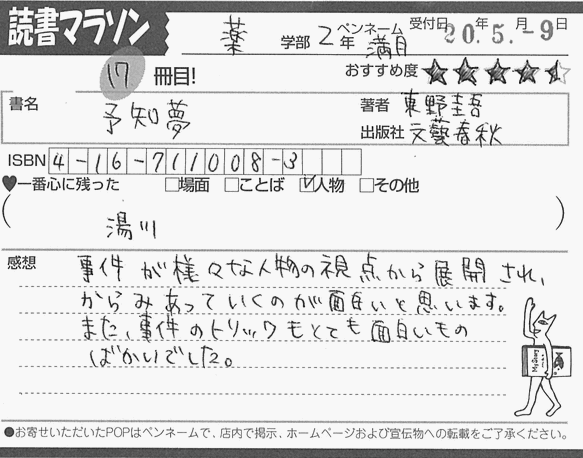 読書マラソン
薬 学部 2年 ペンネーム 満月 受付日 20年5月-9日
17 冊目! おすすめ度
書名 予知夢 著者 東野圭吾
出版社 文藝春秋
ISBN 4-16-711008-3
♥一番心に残った □場面 □ことば ☑人物 □その他
( 湯川 )
感想 事件が様々な人物の視点から展開され、
からみあっていくのが面白いと思います。
また、事件のトリックもとても面白いもの
ばかりでした。
●お寄せいただいたPOPはペンネームで、店内で掲示、ホームページおよび宣伝物への転載をご了承ください。